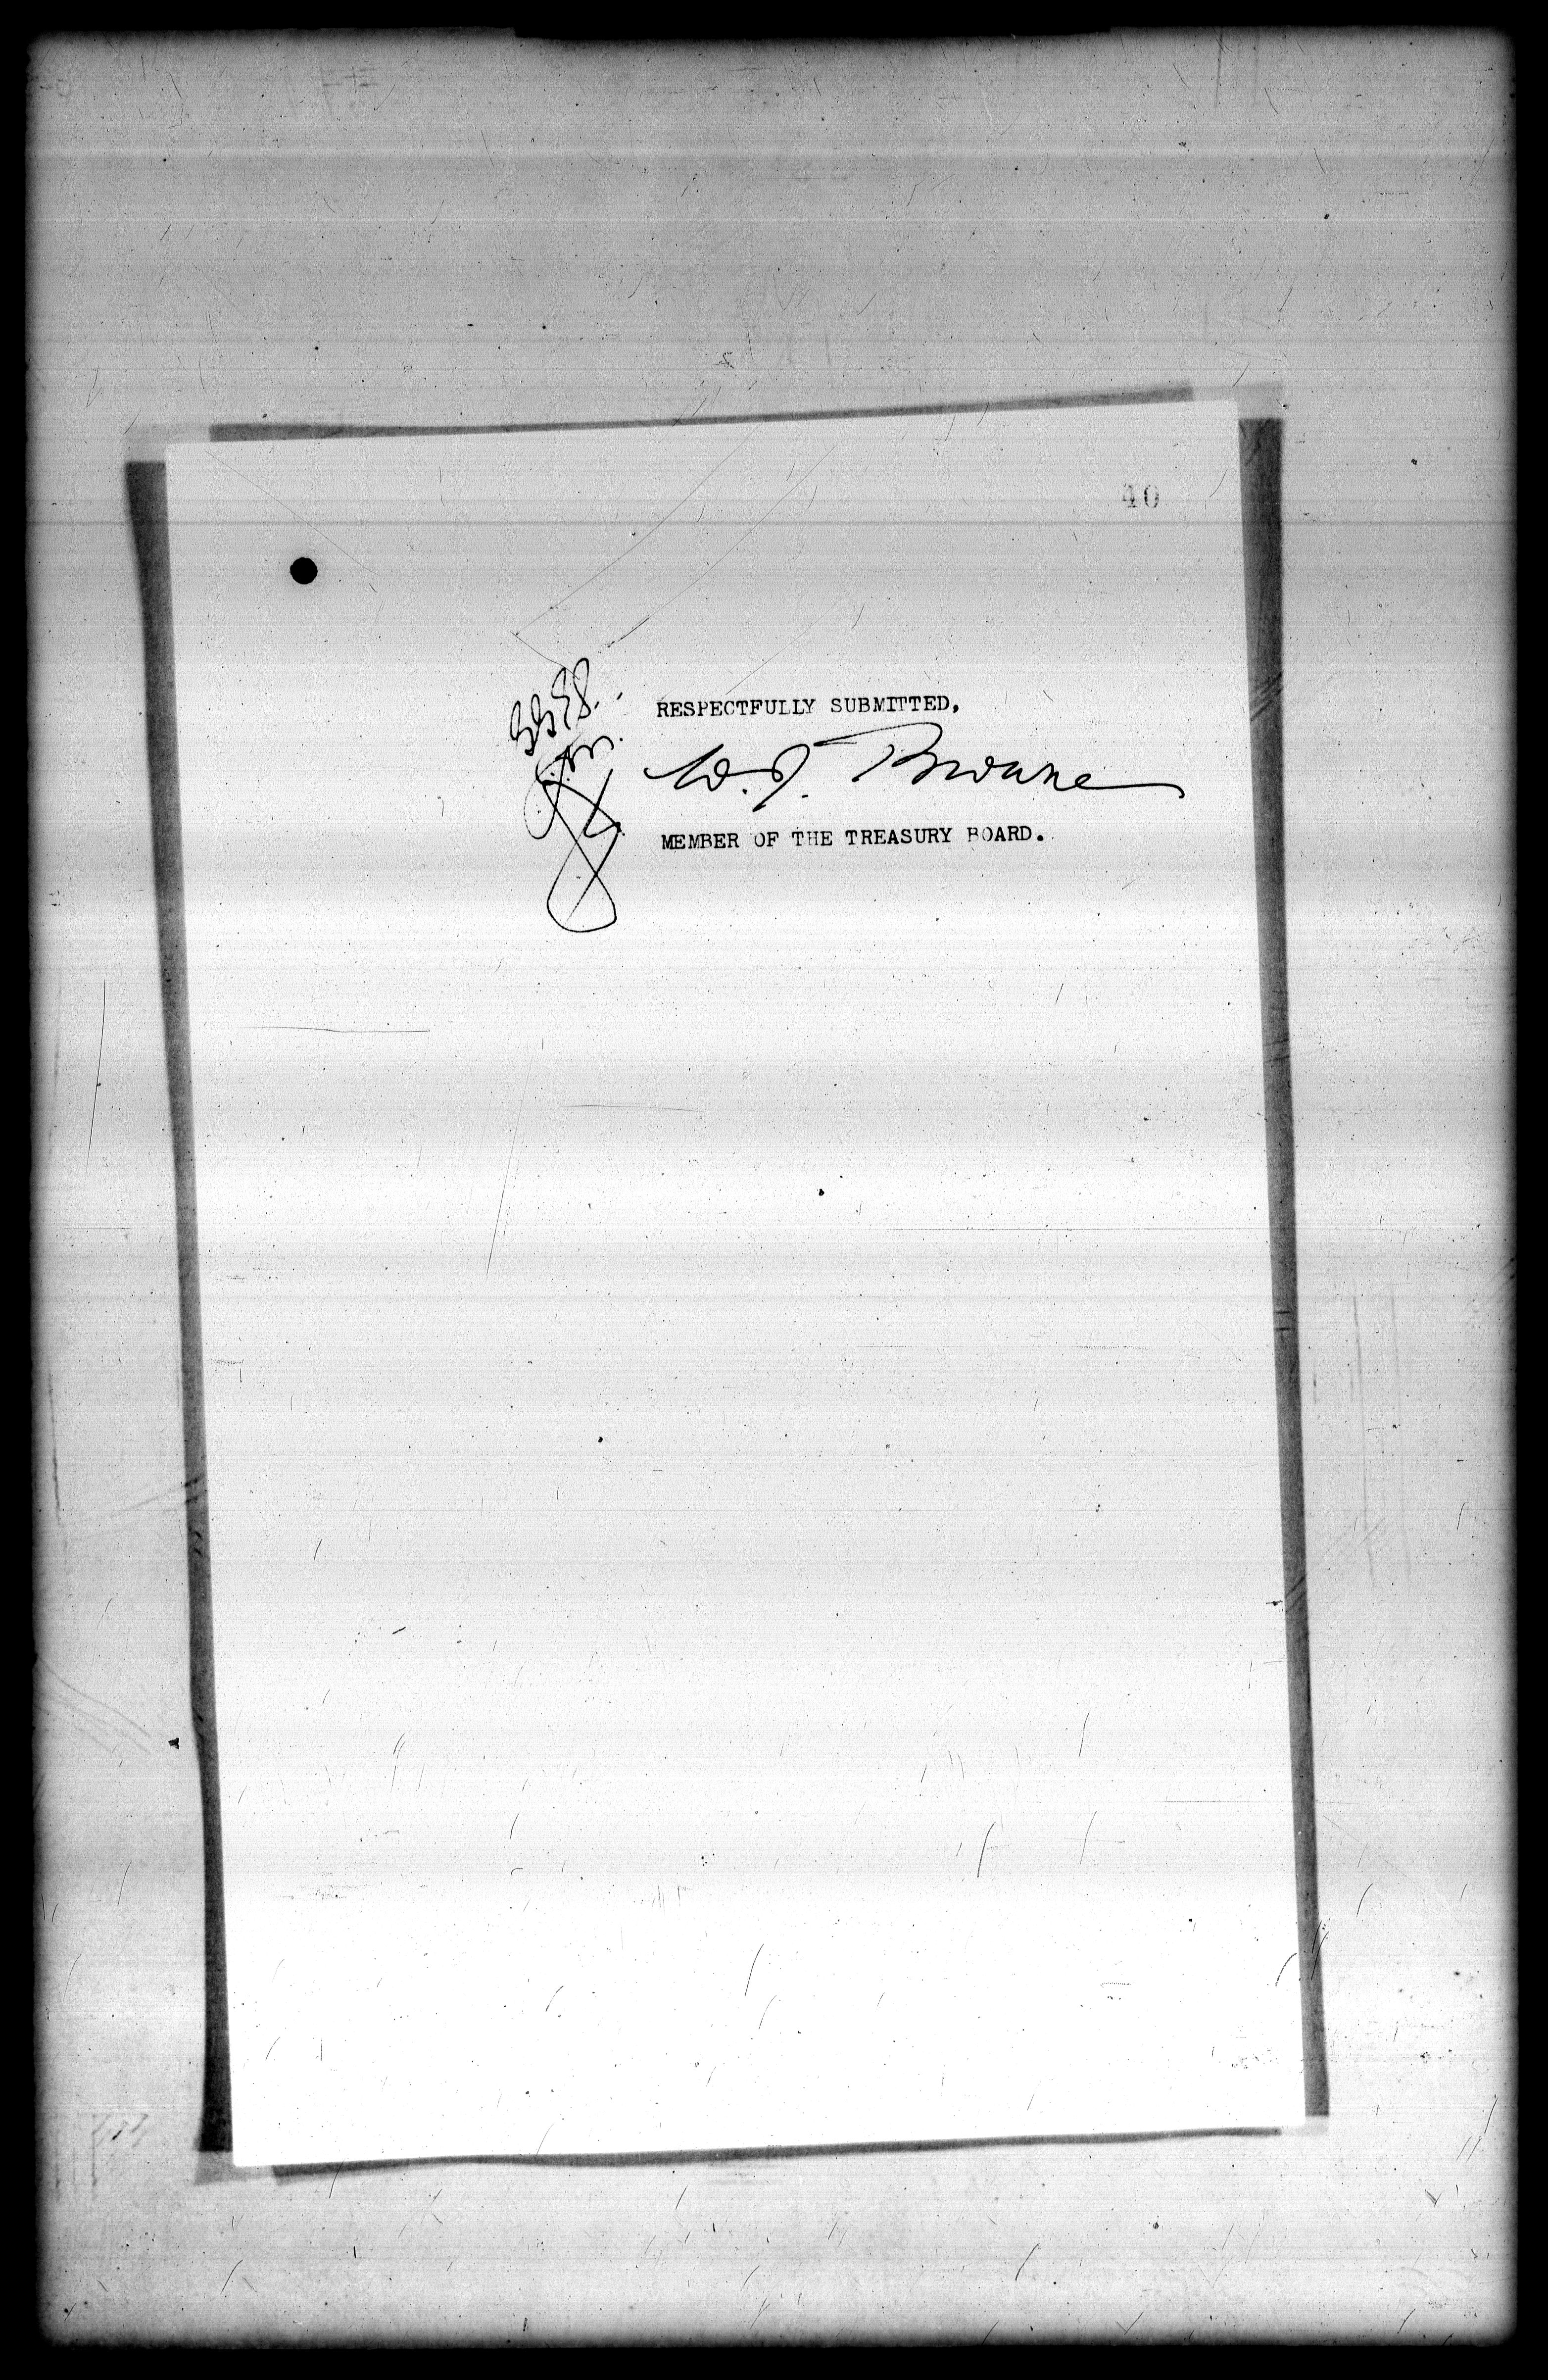 40
RESPECTFULLY SUBMITTED,
W. J. Browne
MEMBER OF THE TREASURY BOARD.